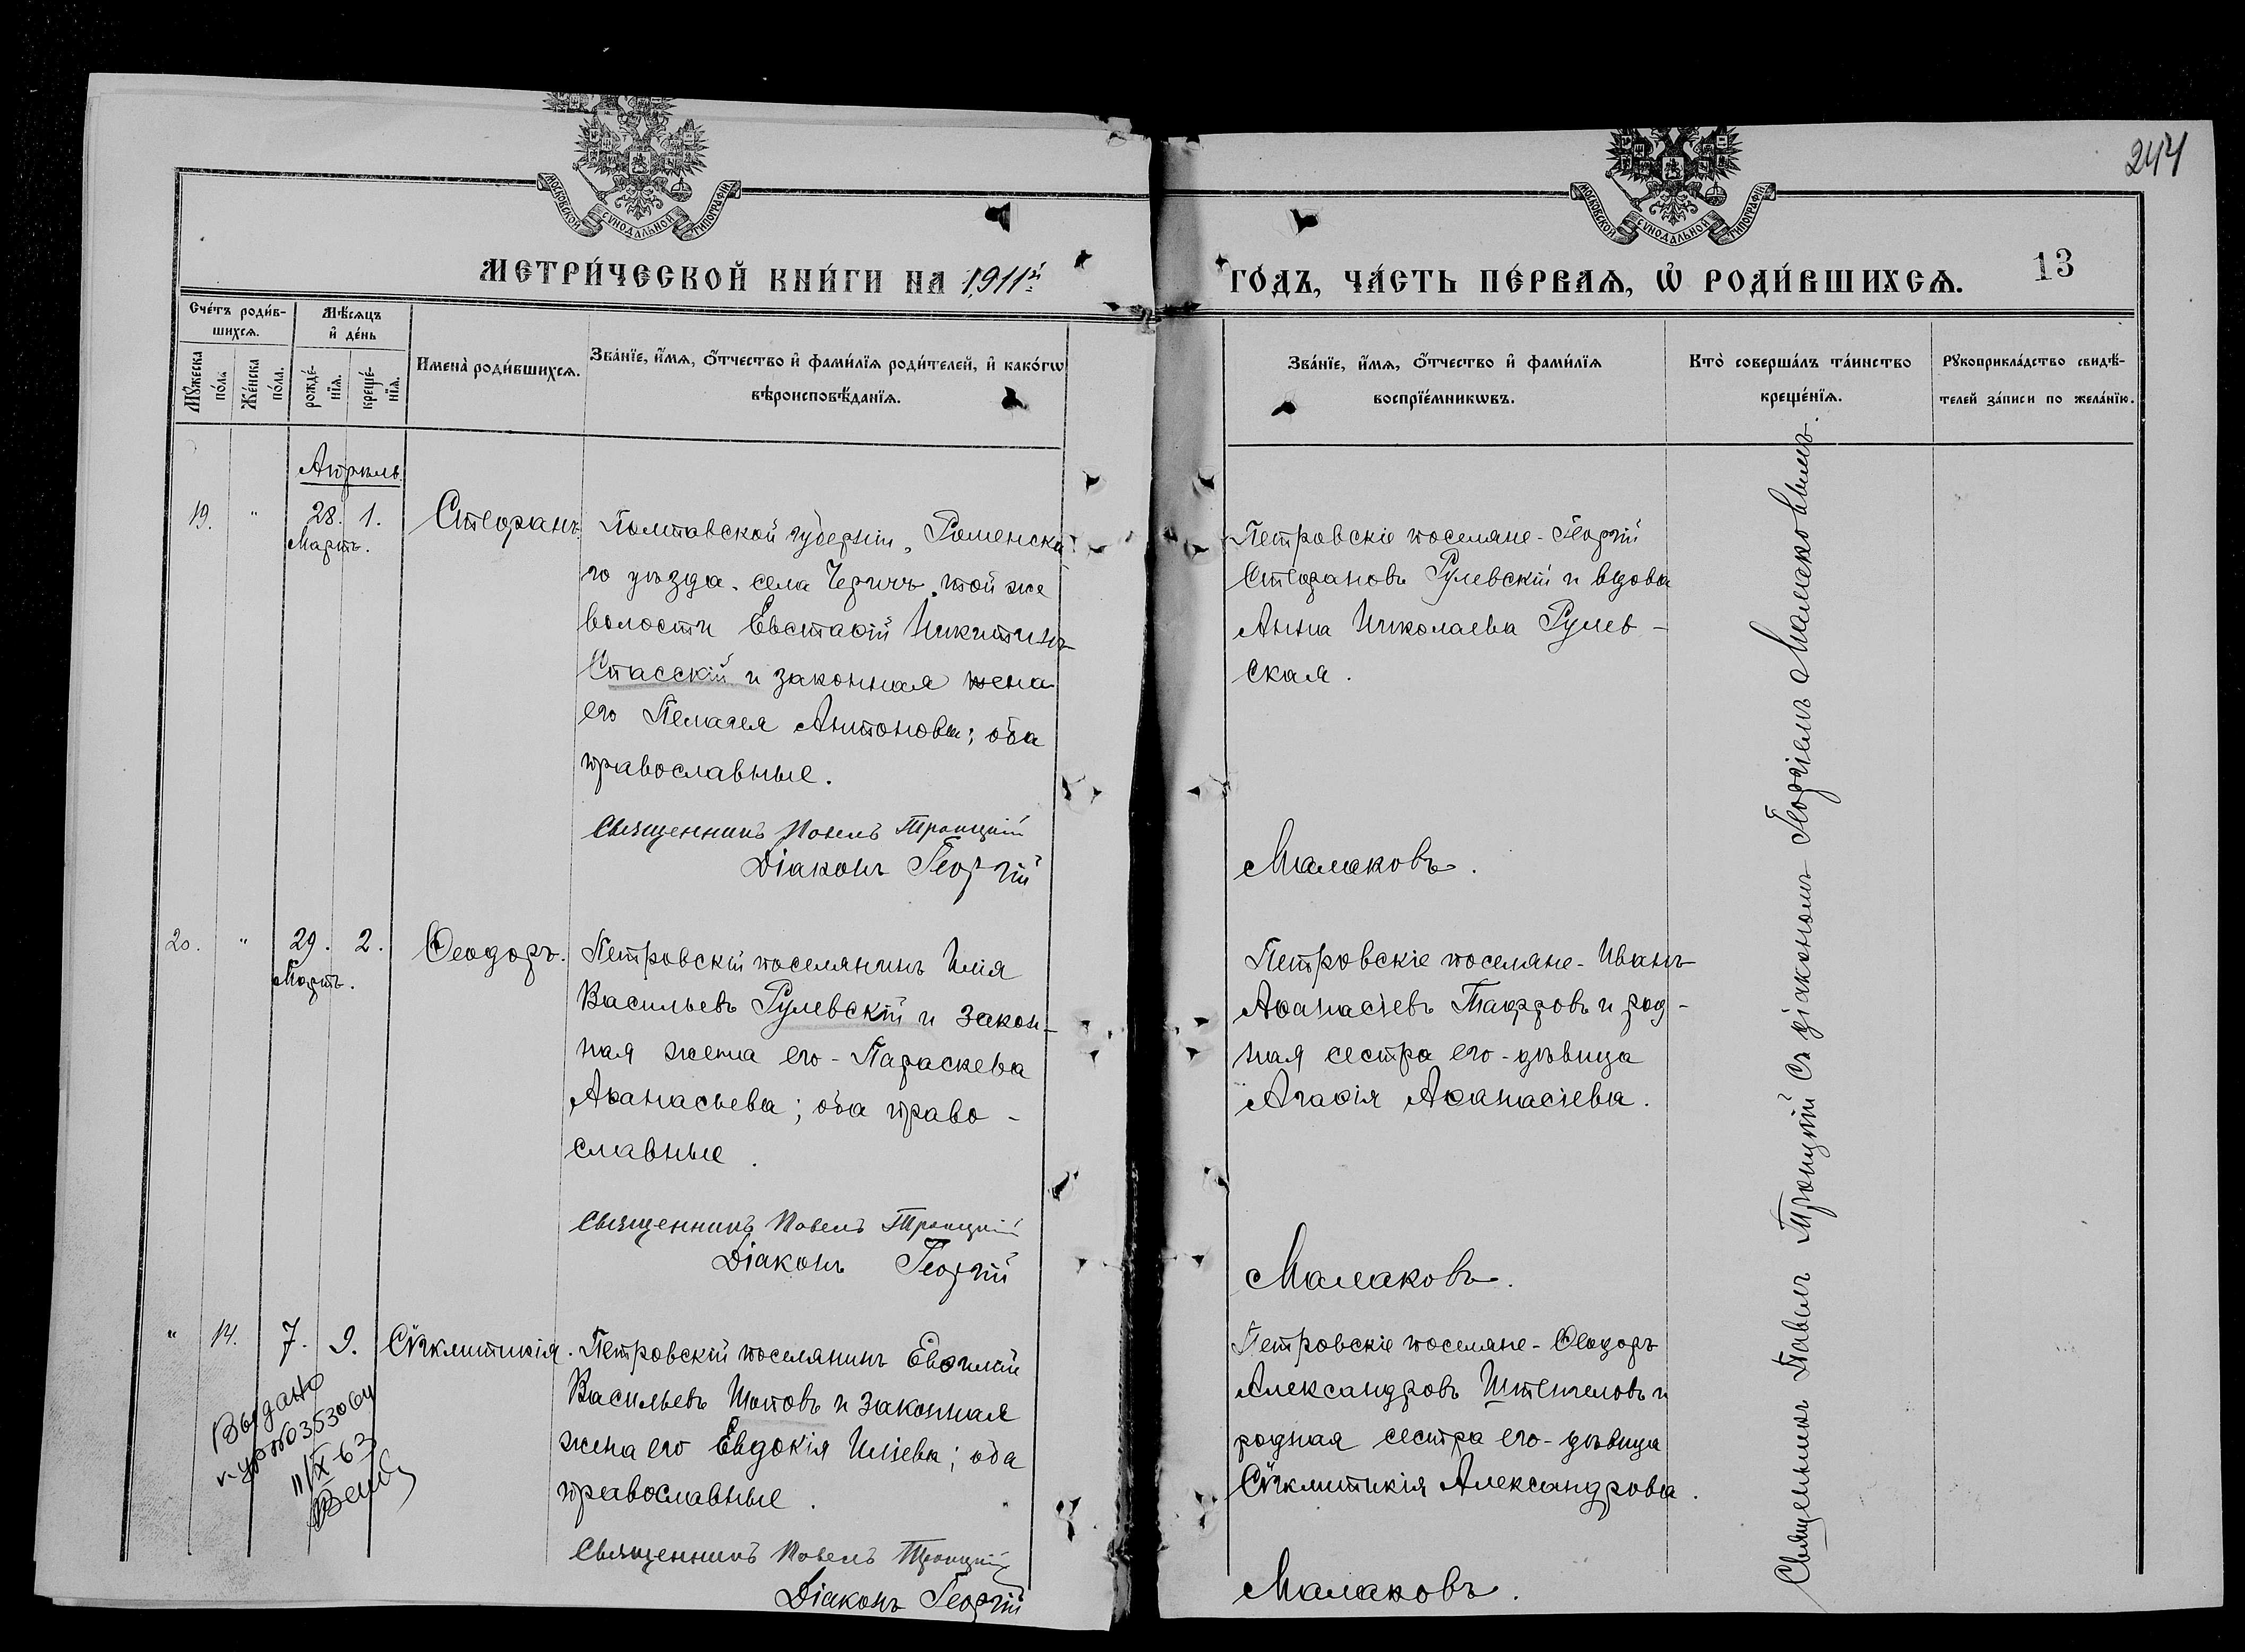 244
МОСКОВСКОЙ СѴНОДАЛЬНОЙ ТИПОГРАФІИ
МОСКОВСКОЙ СѴНОДАЛЬНОЙ ТИПОГРАФІИ
МЕТРИ́ЧЕСКОЙ КНИ́ГИ НА 1911й
ГО́ДЪ, ЧА́СТЬ ПЕ́РВАѦ, Ѡ҆ РОДИ́ВШИХСѦ.
13
Сче́тъ роди́в-
шихсѧ.
Мѣ́сѧцъ
и҆ де́нь
Мꙋ́жеска
по́ла
Же́нска
по́ла.
рожде́-
нїѧ.
креще́-
нїѧ.
Имена̀ роди́вшихсѧ.
Зва́нїе, и҆́мѧ, ѻ҆́тчество и҆ фами́лїѧ роди́телей, и҆ како́гѡ
вѣроисповѣ́данїѧ.
Зва́нїе, и҆́мѧ, ѻ҆́тчество и҆ фами́лїѧ
воспрїе́мникѡвъ.
Кто̀ соверша́лъ та́инство
креще́нїѧ.
Рꙋкоприкла́дство свидѣ́-
телей за́писи по жела́нїю.
Апрѣль
19.
"
28. 1.
Мартъ.
Стефанъ.
Полтавской губерніи, Роменска
го уѣзда, села Черичъ, той же
волости Евстаѳій Никитинъ
Спасскій и законная жена
его Пелагея Антонова; оба
православные.
Священникъ Павелъ Троицкій
Діаконъ Георгій
Петровскіе поселяне - Георгій
Стефановъ Гулевскій и вдова
Анна Николаева Гулев-
ская.
Малаковъ.
20.
"
29. 2.
Мартъ.
Ѳеодоръ.
Петровскій поселянинъ Илія
Васильевъ Гулевскій и закон-
ная жена его - Параскева
Аѳанасьева; оба право-
славные.
Священникъ Павелъ Троицкій
Діаконъ Георгій
Петровскіе поселяне - Иванъ
Аѳанасіевъ Таффровъ и род-
ная сестра его - дѣвица
Агаѳія Аѳанасіева.
Малаковъ.
"
14.
7. 9.
Сѵгклитикія.
Петровскій поселянинъ Евѳимій
Васильевъ Шоповъ и законная
жена его Евдокія Иліева; оба
православные.
Священникъ Павелъ Троицкій
Діаконъ Георгій
Петровскіе поселяне - Ѳеодоръ
Александровъ Штенгеловъ и
родная сестра его - дѣвица
Сѵгклитикія Александрова.
Малаковъ.
Выдано
11/X-63
Священникъ Павелъ Троицкій съ діакономъ Георгіемъ Малаковымъ.